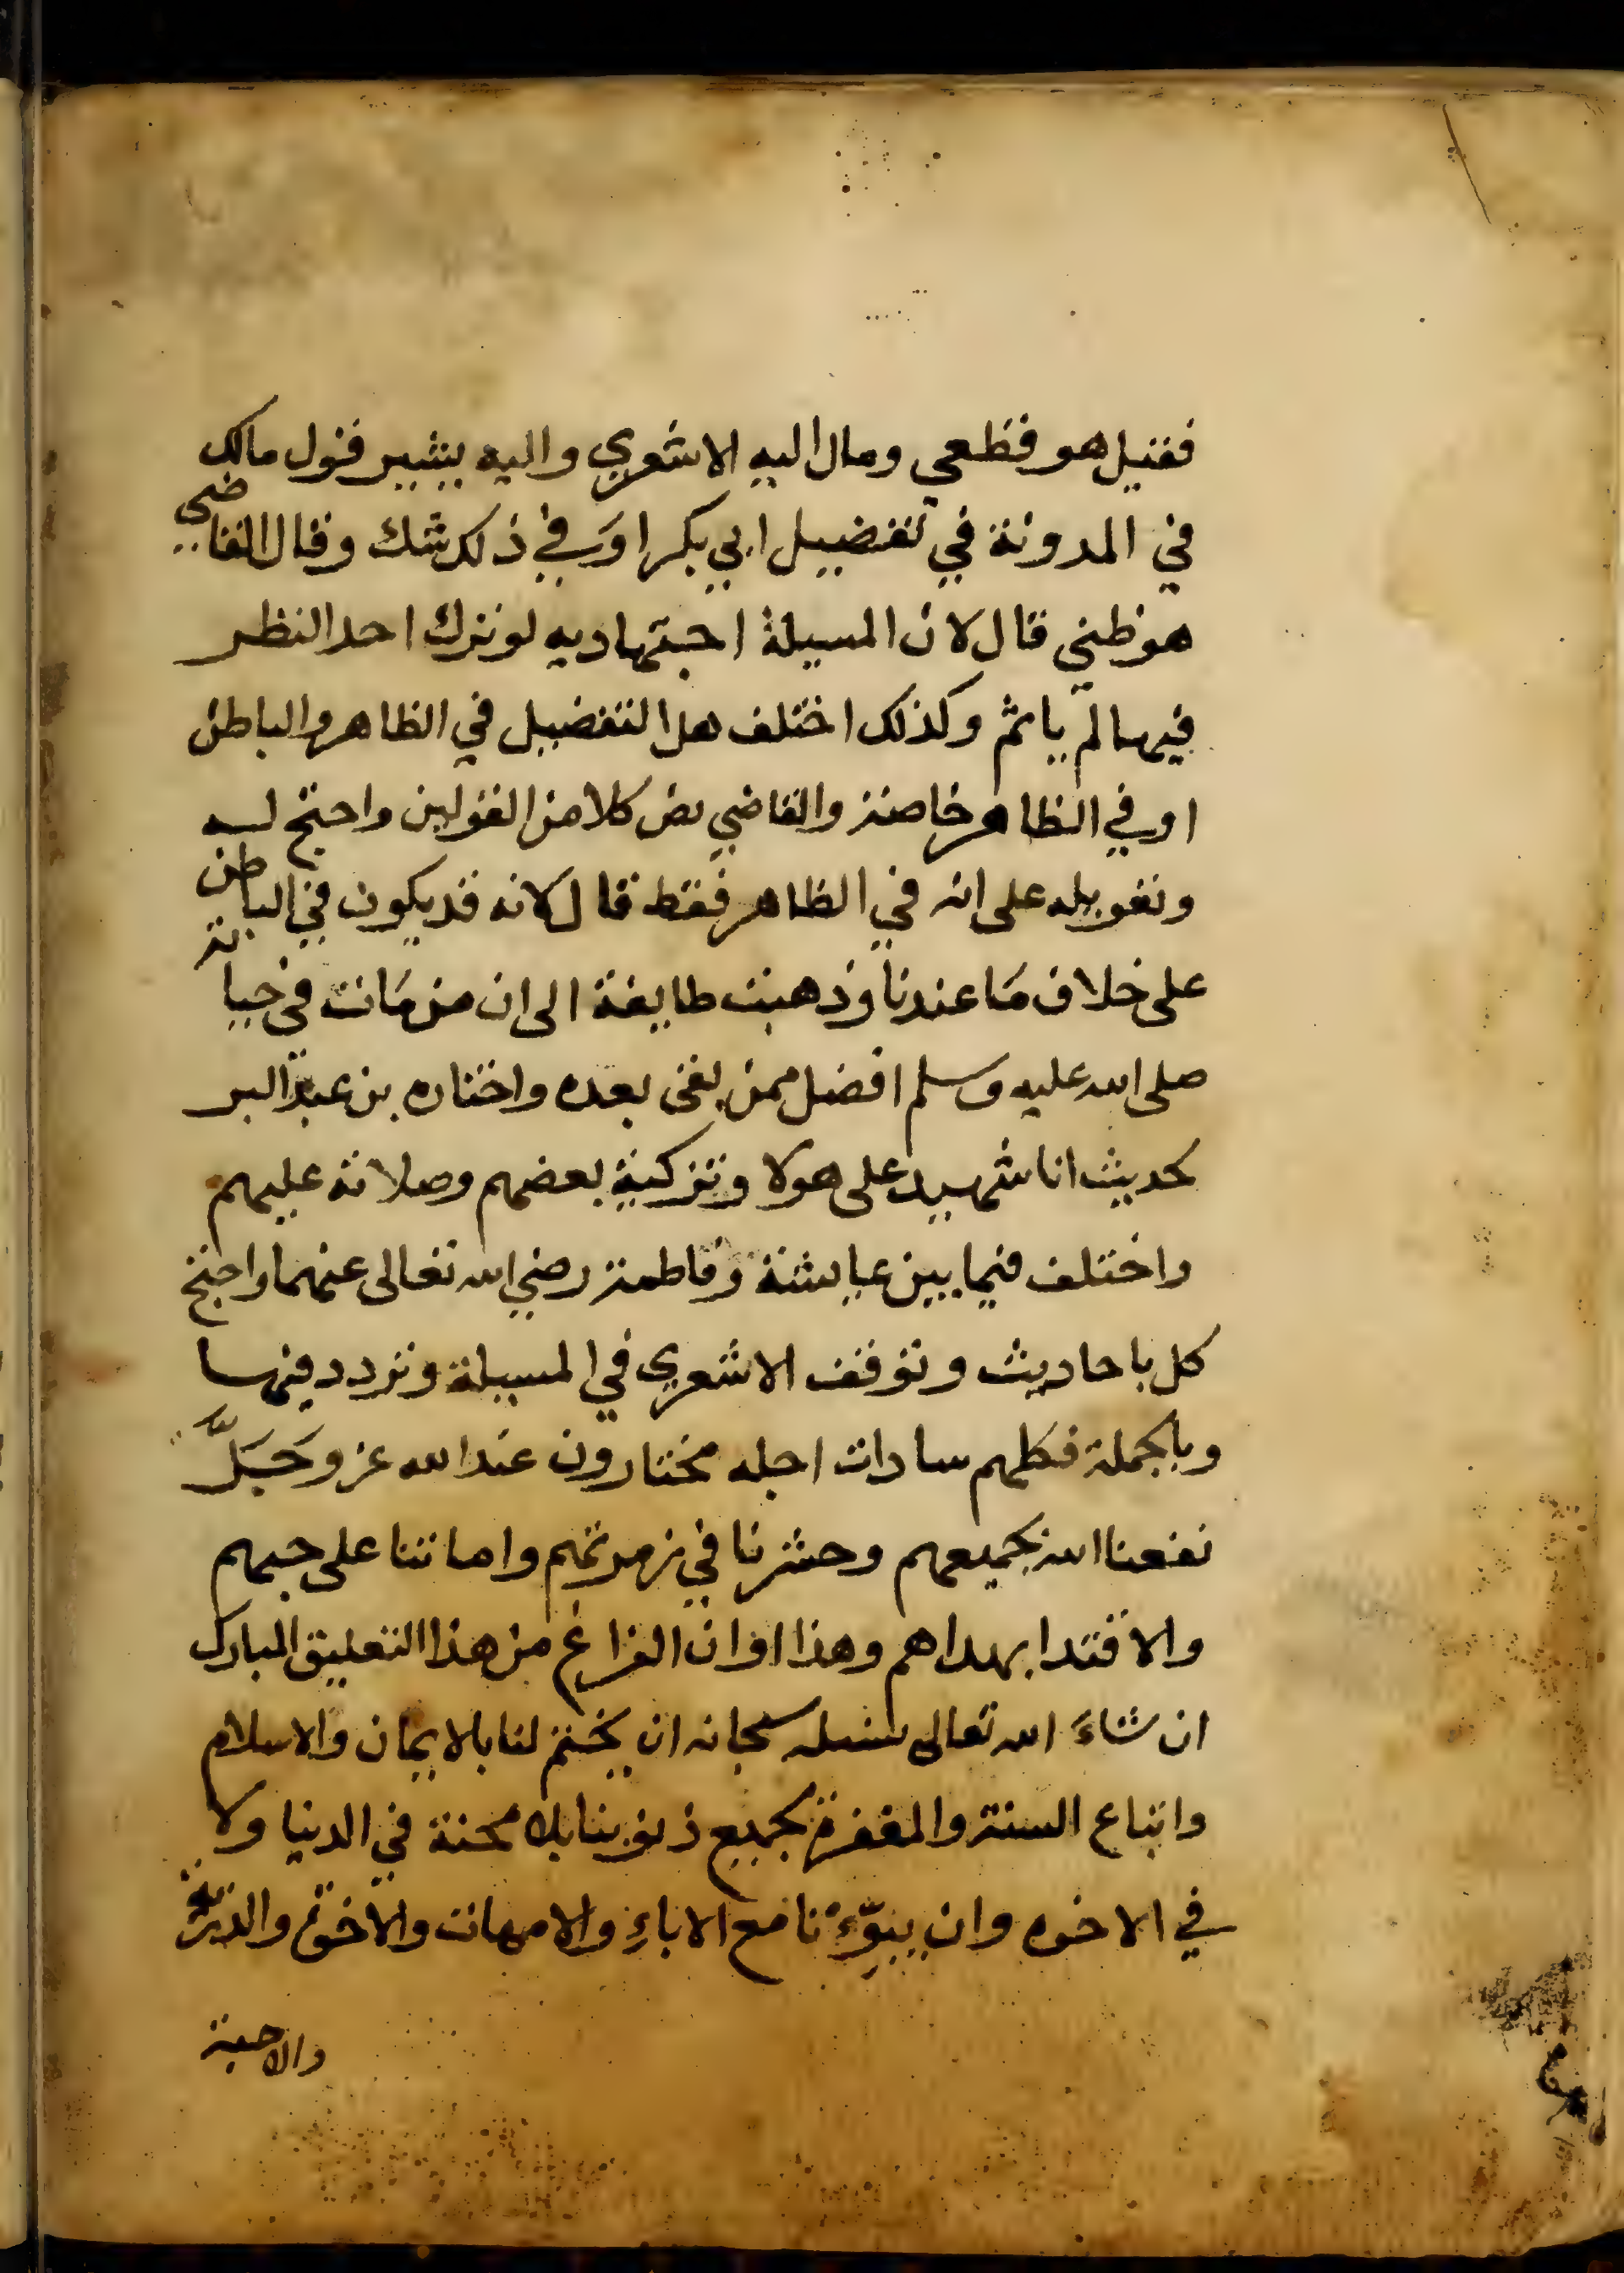 فقيل هو قطعي ومال اليه الاشعري واليه يشير قول مالك
في المدونة في تفضيل ابي بكر اوَفي ذلك شك وقال القاضي
هو ظني قال لان المسيلة اجتهاديه لو ترك احد النظر
فيها لم ياثم وكذلك اختلف هل التفضيل في الظاهر والباطن
او في الظاهر خاصة والقاضي نص كلا من القولين واحتج له
وتعويله على انه في الظاهر فقط قال لانه قد يكون في الباطن
على خلاف مَا عندنا وذهبت طايفة الى ان من مَات في حياته
صلى الله عليه وسلم افضل ممن بقى بعده واختاره بن عبد البر
لحديث انا شهيد على هولا وتزكية بعضهم وصلاته عليهم
واختلف فيما بين عايشة وفاطمة رضي الله تعالى عنهما واحتج
كل باحاديث وتوقف الاشعري في المسيلة وتردد فيها
وبالجملة فكلهم سادات اجله مختارون عند الله عز وَجَلَّ
نفعنا الله بجميعهم وحشرنا في زمرتهم واماتنا على حبهم
والاقتدا بهداهم وهذا اوان الفراغ من هذا التعليق المبارك
ان شاءَ الله تعالى نسله سبحانه ان يختم لنا بالايمان والاسلام
واتباع السنة والمغفرة لجميع ذنوبنا بلا محنة في الدنيا ولا
في الاخره وان يبوّءنا مع الاباءِ والامهات والاخوة والذرّية
والاحبة